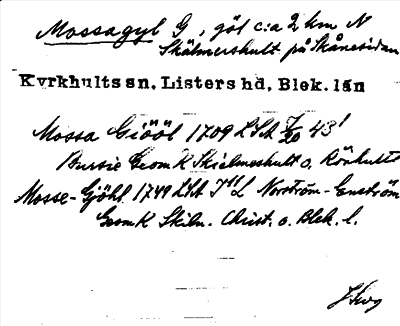 Mossagyl G, göl c:a 2 km N
Skälmershult på Skånesidan
Kyrkhults sn, Listers hd, Blek. län
Mossa Giööl 1709 LSA 43¹
Bursie Geom K Skielmeshult o. Rönhult
Mosse-Gjöhl 1749 LSA Norström-Enström
Geom K Skiln. Christ. o. Blek. l.